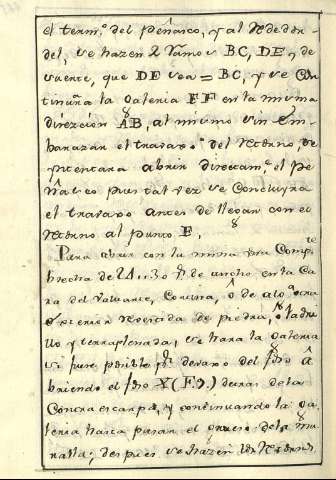 el term.º del peñasco, y al rededor
del, se hazen 2 ramos BC, DE, de
suerte, que DE sea = BC, y se con
tinuara la galeria EF en la misma
direccion AB, al mismo sin em-
barazar el travaxo del retorno, se
yntentara abrir directam.te el pe
ñasco pues tal vez se concluyra
el travaxo antes de llegar con el
retorno al punto E.
Para abrir con la mina una Comp.te
brecha de 24..30 p.s de ancho en la Ca
ra del Valuarte, Cortina, ô de
exterior vestida de piedra, ô ladri
llo y terraplenada, se hara la galeria
si fuere posible p.r devaxo del foso â
briendo el foso X (F9) detras de la
Contraescarpa, y continuando la ga
leria hasta pasar el grueso de la mu
ralla; despues se hazen los Retornos